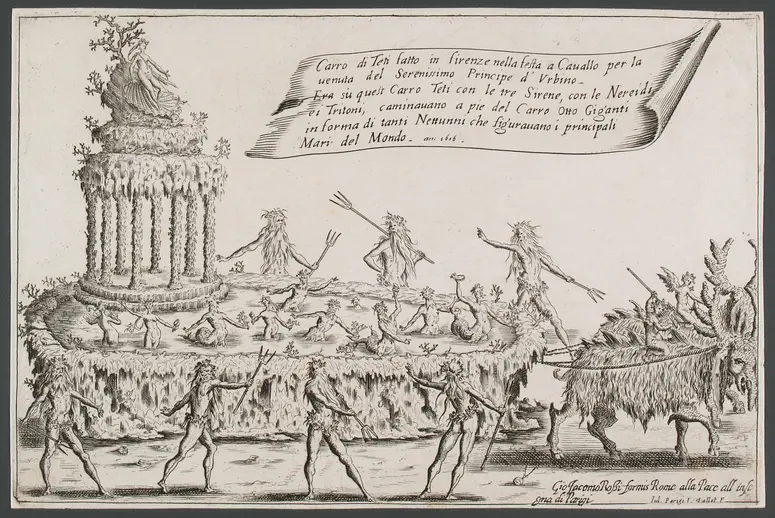 Carro di Teti fatto in firenze nella festa a Cauallo per la
uenuta del Serenissimo Principe d' Vrbino.
Era su quest Carro Teti con le tre Sirene, con le Nereidi,
ei Tritoni, caminauano a pie del Carro Otto Giganti
in forma di tanti Nettunni che figurauano i principali
Mari del Mondo. an: 1616.
Gio Jacomo Rossi formis Rome alla Pace all' inse
gna di Parigi
Iul. Parigi I. Callot F.